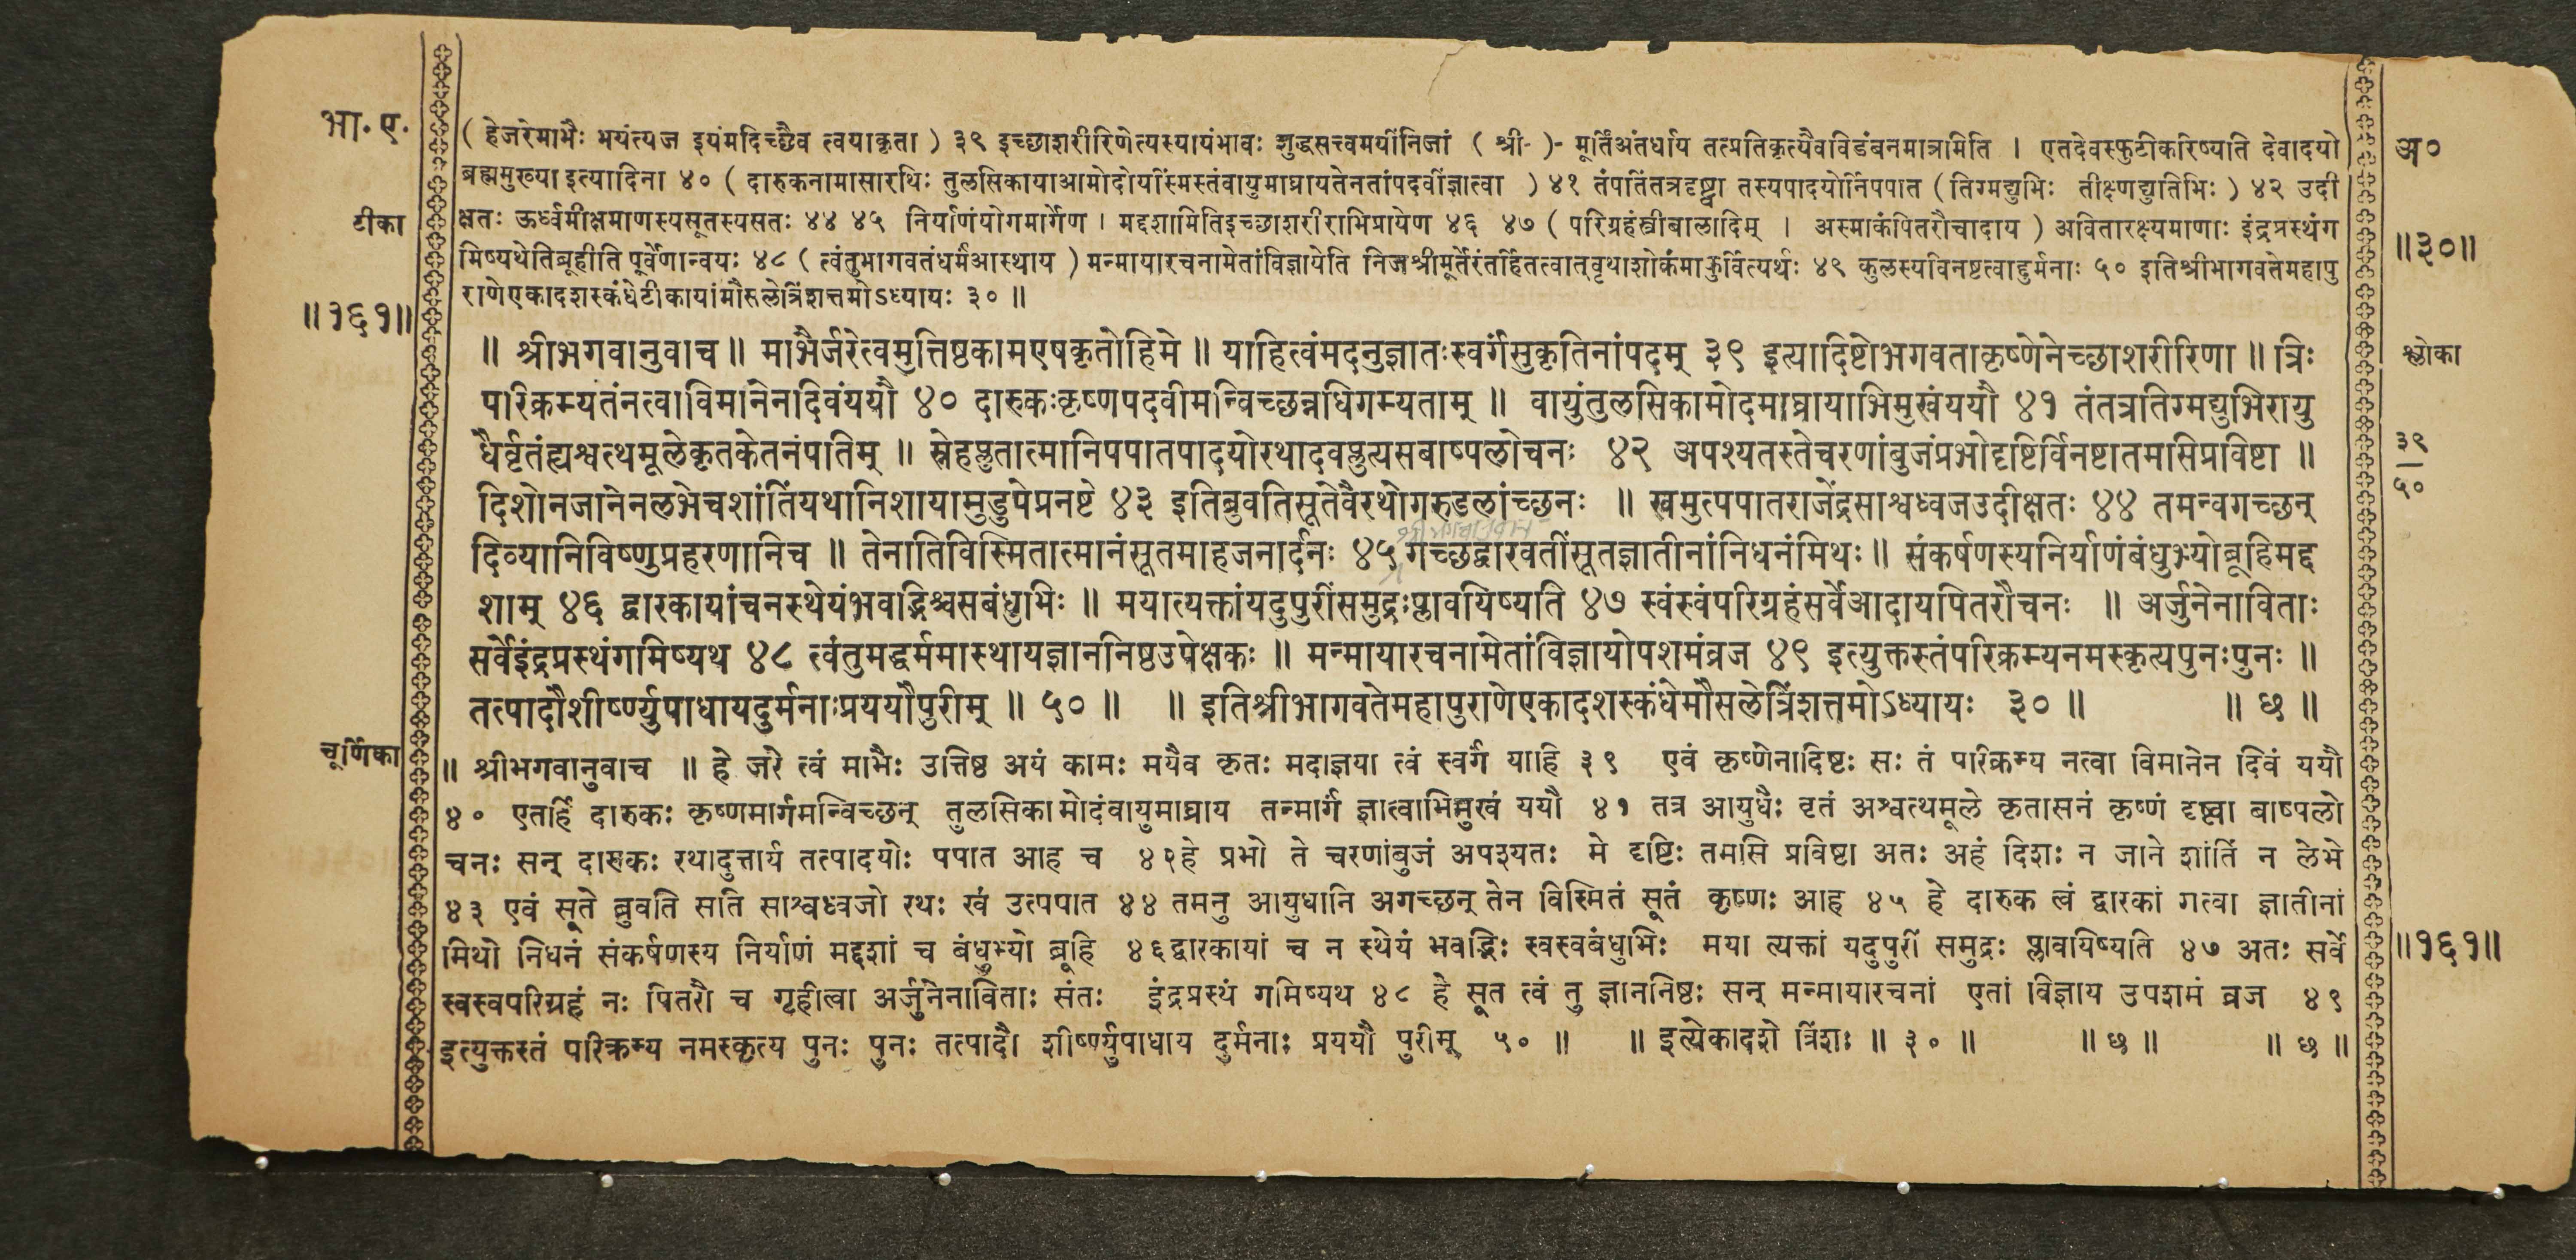 भा. ए.
( हेजरेमाभैः भयंत्यज इयंमदिच्छैव त्वयाकृता ) ३९ इच्छाशरीरिणेत्यस्यायंभावः शुद्धसत्त्वमयींनिजां ( श्री- )- मूर्तिंअंतर्धाय तत्प्रतिकृत्यैवविडंबनमात्रामिति । एतदेवस्फुटीकरिष्याति देवादयो
ब्रह्ममुख्या इत्यादिना ४० ( दारुकनामासारथिः तुलसिकायाआमोदोयस्मिंस्तंवायुमाघ्रायतेनतांपदवींज्ञात्वा ) ४१ तंपतिंतत्रदृष्ट्वा तस्यपादयोर्निपपात ( तिग्मद्युभिः तीक्ष्णद्युतिभिः ) ४२ उदी
टीका
क्षतः ऊर्ध्वमीक्षमाणस्यसूतस्यसतः ४४ ४५ निर्याणंयोगमार्गेण । मद्दशामितिइच्छाशरीराभिप्रायेण ४६ ४७ ( परिग्रहंस्त्रीबालादिम् । अस्माकंपितरौचादाय ) अवितारक्ष्यमाणाः इंद्रप्रस्थंग
मिष्यथेतिब्रूहीति पूर्वेणान्वयः ४८ ( त्वंतुभागवतंधर्मंआस्थाय ) मन्मायारचनामेतांविज्ञायेति निजश्रीमूर्तेरंतर्हितत्वात्वृथाशोकंमाकुर्वित्यर्थः ४९ कुलस्यविनष्टत्वाद्दुर्मनाः ५० इतिश्रीभागवतेमहापु
राणेएकादशस्कंधेटीकायांमौसलेत्रिंशत्तमोऽध्यायः ३० ॥
॥१६१॥
॥ श्रीभगवानुवाच ॥ माभैर्जरेत्वमुत्तिष्ठकामएषकृतोहिमे ॥ याहित्वंमदनुज्ञातःस्वर्गंसुकृतिनांपदम् ३९ इत्यादिष्टोभगवताकृष्णेनेच्छाशरीरिणा ॥ त्रिः
पारिक्रम्यतंनत्वाविमानेनदिवंययौ ४० दारुकःकृष्णपदवीमन्विच्छन्नधिगम्यताम् ॥ वायुंतुलसिकामोदमाघ्रायाभिमुखंययौ ४१ तंतत्रतिग्मद्युभिरायु
धैर्वृतंह्यश्वत्थमूलेकृतकेतनंपतिम् ॥ स्नेहप्लुतात्मानिपपातपादयोरथादवप्लुत्यसबाष्पलोचनः ४२ अपश्यतस्तेचरणांबुजंप्रभोदृष्टिर्विनष्टातमसिप्रविष्टा ॥
दिशोनजानेनलभेचशांतिंयथानिशायामुडुपेप्रनष्टे ४३ इतिब्रुवतिसूतेवैरथोगरुडलांच्छनः ॥ खमुत्पपातराजेंद्रसाश्वध्वजउदीक्षतः ४४ तमन्वगच्छन्
दिव्यानिविष्णुप्रहरणानिच ॥ तेनातिविस्मितात्मानंसूतमाहजनार्दनः ४५ गच्छद्वारवतींसूतज्ञातीनांनिधनंमिथः ॥ संकर्षणस्यनिर्याणंबंधुभ्योब्रूहिमद्द
शाम् ४६ द्वारकायांचनस्थेयंभवद्भिश्चसबंधुभिः ॥ मयात्यक्तांयदुपुरींसमुद्रःप्लावयिष्यति ४७ स्वंस्वंपरिग्रहंसर्वेआदायपितरौचनः ॥ अर्जुनेनाविताः
सर्वेइंद्रप्रस्थंगमिष्यथ ४८ त्वंतुमद्धर्ममास्थायज्ञाननिष्ठउपेक्षकः ॥ मन्मायारचनामेतांविज्ञायोपशमंव्रज ४९ इत्युक्तस्तंपरिक्रम्यनमस्कृत्यपुनःपुनः ॥
तत्पादौशीर्ष्ण्युपाधायदुर्मनाःप्रययौपुरीम् ॥ ५० ॥ ॥ इतिश्रीभागवतेमहापुराणेएकादशस्कंधेमौसलेत्रिंशत्तमोऽध्यायः ३० ॥ ॥ छ ॥
चूर्णिका
॥ श्रीभगवानुवाच ॥ हे जरे त्वं माभैः उत्तिष्ठ अयं कामः मयैव कृतः मदाज्ञया त्वं स्वर्गं याहि ३९ एवं कृष्णेनादिष्टः सः तं पारिक्रम्य नत्वा विमानेन दिवं ययौ
४० एतर्हि दारुकः कृष्णमार्गमन्विच्छन् तुलसिकामोदंवायुमाघ्राय तन्मार्गं ज्ञात्वाभिमुखं ययौ ४१ तत्र आयुधैः वृतं अश्वत्थमूले कृतासनं कृष्णं दृष्ट्वा बाष्पलो
चनः सन् दारुकः रथादुत्तार्य तत्पादयोः पपात आह च ४२हे प्रभो ते चरणांबुजं अपश्यतः मे दृष्टिः तमसि प्रविष्टा अतः अहं दिशः न जाने शांतिं न लेभे
४३ एवं सूते ब्रुवति सति साश्वध्वजो रथः खं उत्पपात ४४ तमनु आयुधानि अगच्छन् तेन विस्मितं सूतं कृष्णः आह ४५ हे दारुक त्वं द्वारकां गत्वा ज्ञातीनां
मिथो निधनं संकर्षणस्य निर्याणं मद्दशां च बंधुभ्यो ब्रूहि ४६द्वारकायां च न स्थेयं भवद्भिः स्वस्वबंधुभिः मया त्यक्तां यदुपुरीं समुद्रः प्लावयिष्यति ४७ अतः सर्वे
स्वस्वपरिग्रहं नः पितरौ च गृहीत्वा अर्जुनेनाविताः संतः इंद्रप्रस्थं गमिष्यथ ४८ हे सूत त्वं तु ज्ञाननिष्ठः सन् मन्मायारचनां एतां विज्ञाय उपशमं व्रज ४९
इत्युक्तस्तं परिक्रम्य नमस्कृत्य पुनः पुनः तत्पादौ शीर्ष्ण्युपाधाय दुर्मनाः प्रययौ पुरीम् ५० ॥ ॥ इत्येकादशे त्रिंशः ॥ ३० ॥ ॥ छ ॥ ॥ छ ॥
अ०
॥३०॥
श्लोका
३९
५०
॥१६१॥